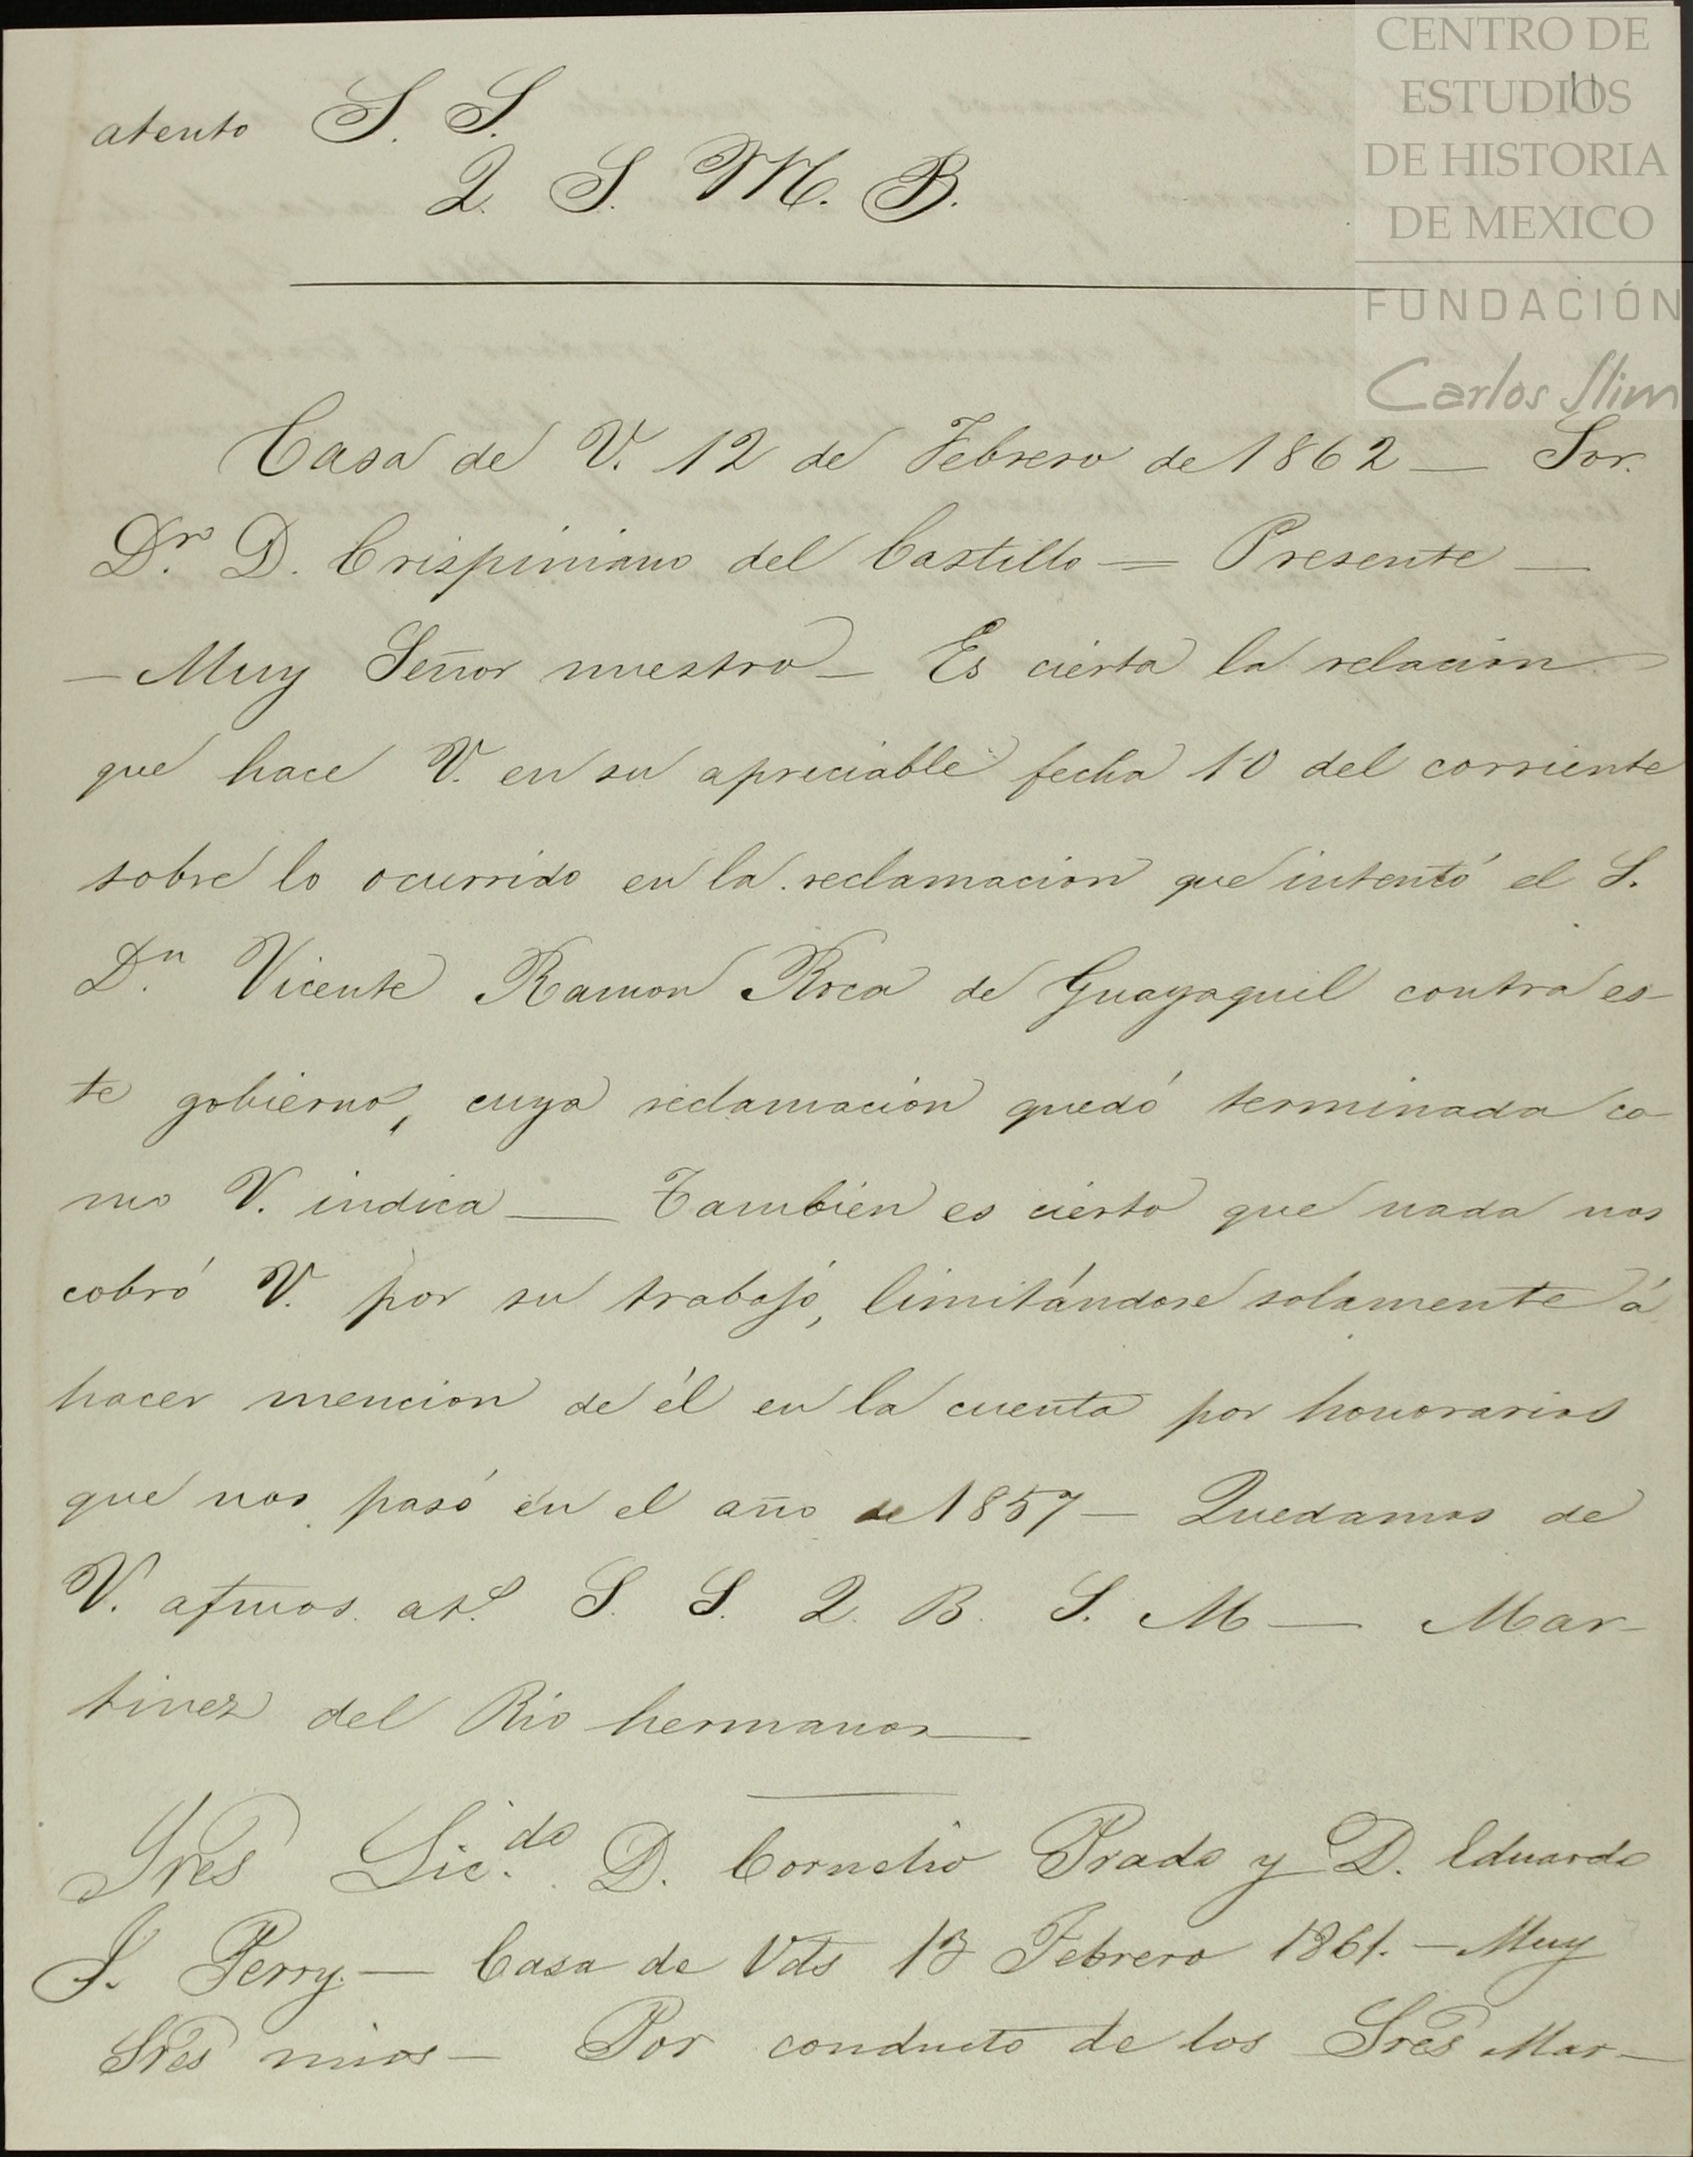 CENTRO DE
ESTUDIOS
DE HISTORIA
DE MEXICO
FUNDACIÓN
Carlos Slim
11
atento S. S.
Q. S. M. B.
Casa de V. 12 de Febrero de 1862 — Sor.
Dr. D. Crispiniano del Castillo = Presente —
— Muy Señor nuestro — Es cierta la relacion
que hace V. en su apreciable fecha 10 del corriente
sobre lo ocurrido en la reclamacion que intentó el S.
Dn. Vicente Ramon Roca de Guayaquil contra es-
te gobierno, cuya reclamacion quedó terminada co-
mo V. indica — Tambien es cierto que nada nos
cobró V. por su trabajo, limitándose solamente á
hacer mencion de él en la cuenta por honorarios
que nos pasó en el año de 1857 — Quedamos de
V. afmos. ats. S. S. Q. B. S. M — Mar-
tinez del Rio hermanos —
Sres Lic.do D. Cornelio Prado y D. Eduardo
J. Perry. — Casa de Vds 13 Febrero 1861. — Muy
Sres mios — Por conducto de los Sres Mar-